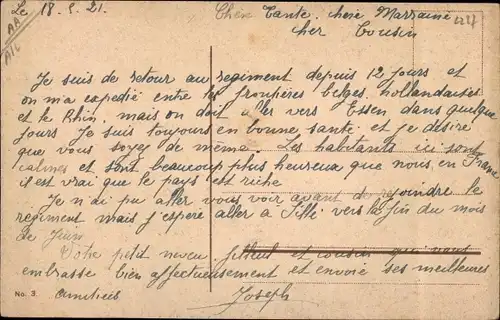 Le 18.5.21.
Chère Tante, chère Marraine
cher Cousin
Je suis de retour au regiment depuis 12 jours et
on m'a expedié entre les frontières belges, hollandaises
et le Rhin, mais on doit aller vers Essen dans quelque
jours Je suis toujours en bonne santé et je désire
que vous soyez de même. Les habitants ici sont
calmes et sont beaucoup plus heureux que nous en France
il est vrai que le pays est riche
Je n'ai pu aller vous voir avant de rejoindre le
regiment mais j'espère aller à vers la fin du mois
de Juin
Votre petit neveu filleul et cousin qui vous
embrasse bien affectueusement et envoie ses meilleures
amitiées
Joseph
No. 3